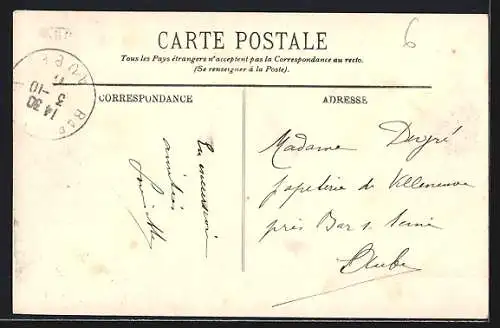 6
CARTE POSTALE
Tous les Pays étrangers n'acceptent pas la Correspondance au recto.
(Se renseigner à la Poste).
14 30
3 -10
AUBE
CORRESPONDANCE
ADRESSE
amitiés
Madame
papeterie de Villeneuve
près Bar s. Seine
Aube